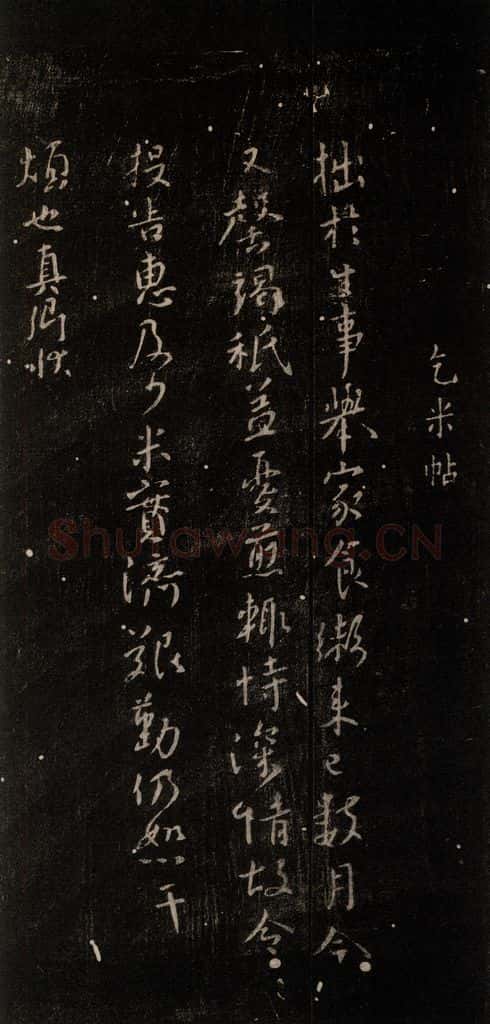 乞米帖
拙於生事舉家食粥來已數月今
又罄竭祇益憂煎輒恃深情故令
投告惠及少米實濟艱勤仍恕干
煩也真卿狀
Shufawang.CN